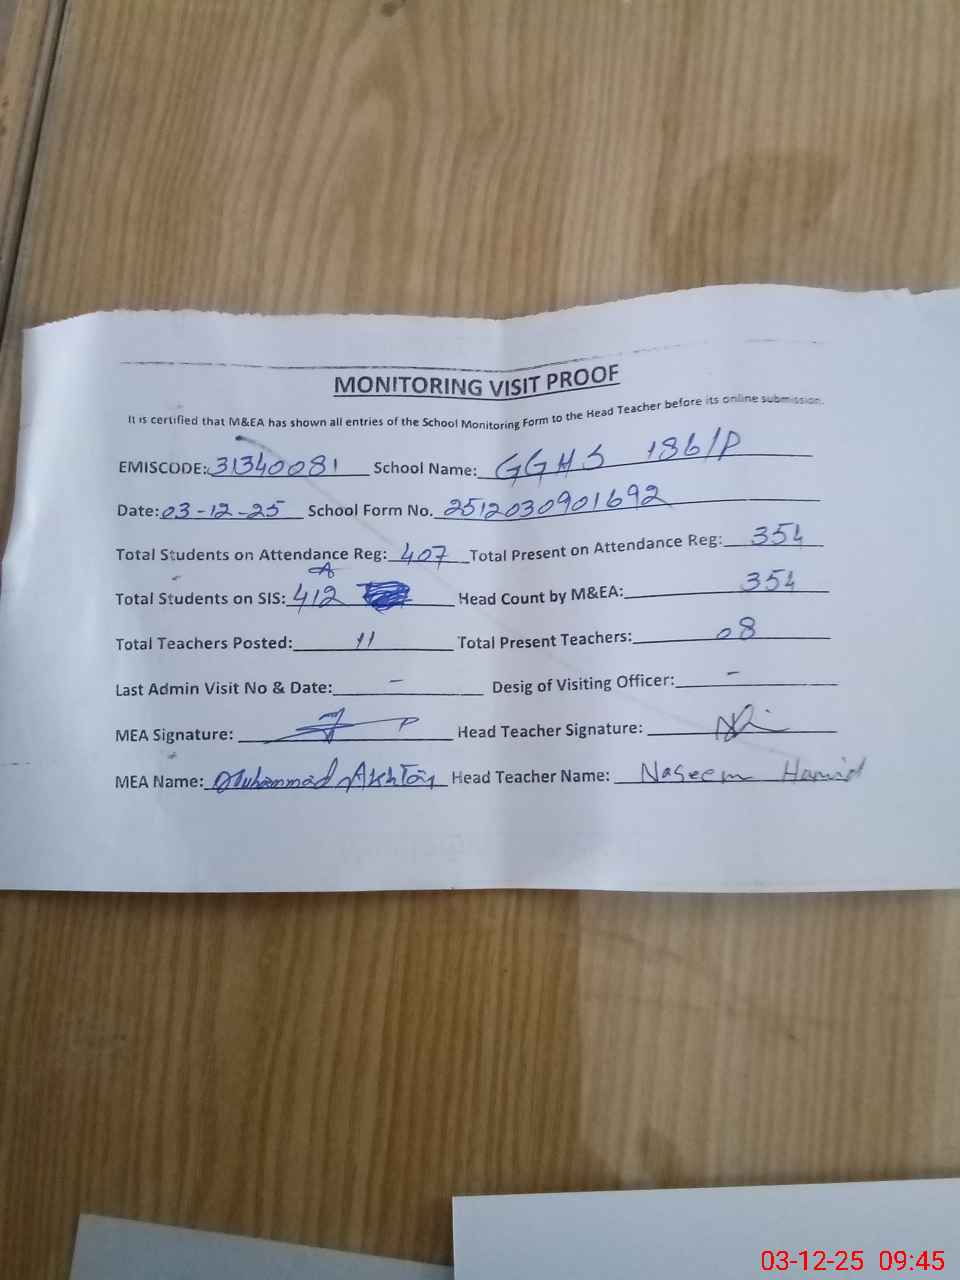 MONITORING VISIT PROOF
It is certified that M&EA has shown all entries of the School Monitoring Form to the Head Teacher before its online submission.
EMISCODE: 31340081 School Name: GGHS 186/P
Date: 03-12-25 School Form No. 2512030901692
Total Students on Attendance Reg: 407 Total Present on Attendance Reg: 354
Total Students on SIS: 412 Head Count by M&EA: 354
Total Teachers Posted: 11 Total Present Teachers: 08
Last Admin Visit No & Date: - Desig of Visiting Officer: -
MEA Signature: Head Teacher Signature:
MEA Name: Muhammad Akhtar Head Teacher Name: Naseem Hamid
03-12-25 09:45